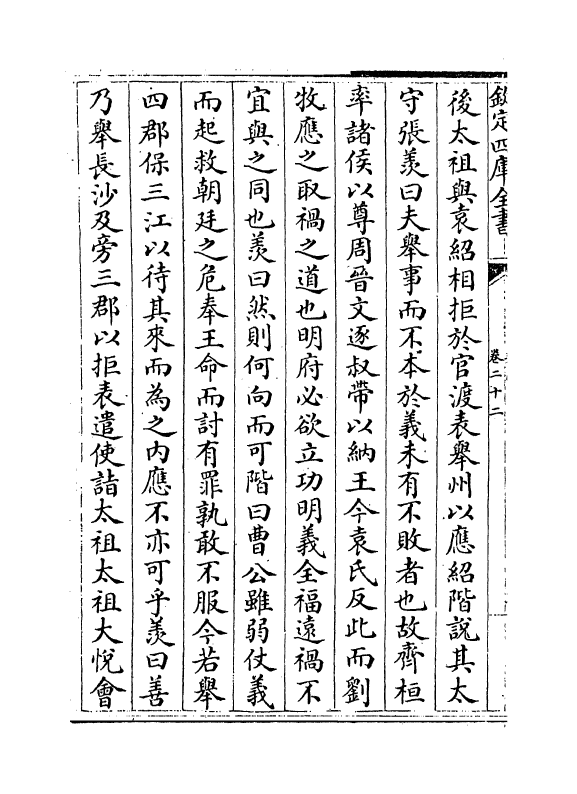 欽定四庫全書
卷二十二
後太祖與袁紹相拒於官渡表舉州以應紹階說其太
守張羨曰夫舉事而不本於義未有不敗者也故齊桓
率諸侯以尊周晉文逐叔帶以納王今袁氏反此而劉
牧應之取禍之道也明府必欲立功明義全福遠禍不
宜與之同也羨曰然則何向而可階曰曹公雖弱仗義
而起救朝廷之危奉王命而討有罪孰敢不服今若舉
四郡保三江以待其來而為之内應不亦可乎羨曰善
乃舉長沙及旁三郡以拒表遣使詣太祖太祖大悅會